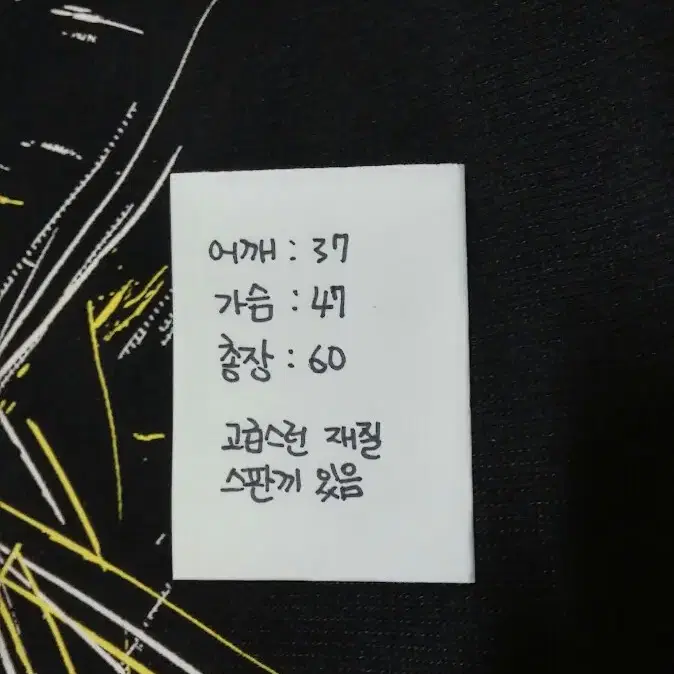 어깨 : 37
가슴 : 47
총장 : 60
고급스런 재질
스판끼 있음